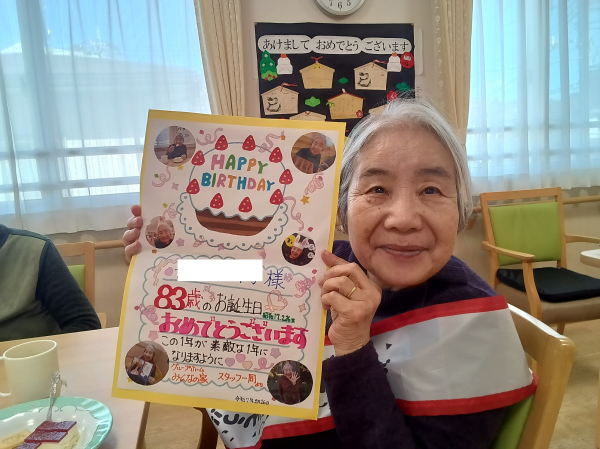 7
6
5
あけまして おめでとう ございます
HAPPY
BIRTHDAY
様
83歳のお誕生日
おめでとうございます
この1年が素敵な1年に
なりますように
グループホーム
みんなの家 スタッフ一同より